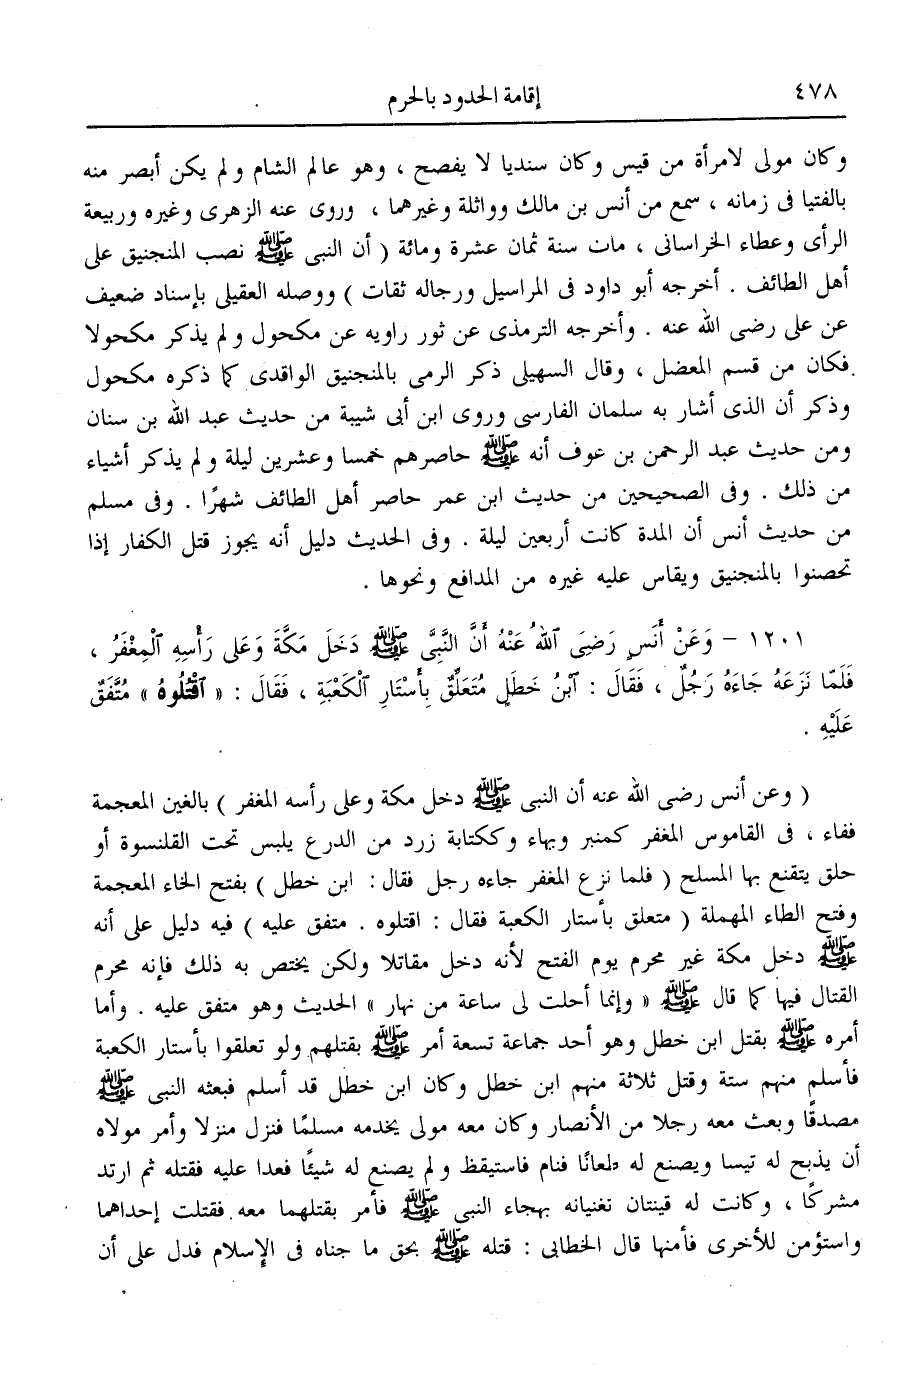 ٤٧٨ إقامة الحدود بالحرم
وكان مولى لامرأة من قيس وكان سنديا لا يفصح ، وهو عالم الشام ولم يكن أبصر منه
بالفتيا فى زمانه ، سمع من أنس بن مالك وواثلة وغيرهما ، وروى عنه الزهرى وغيره وربيعة
الرأى وعطاء الخراسانى ، مات سنة ثمان عشرة ومائة ( أن النبى ﷺ نصب المنجنيق على
أهل الطائف . أخرجه أبو داود فى المراسيل ورجاله ثقات ) ووصله العقيلى بإسناد ضعيف
عن على رضى الله عنه . وأخرجه الترمذى عن ثور راويه عن مكحول ولم يذكر مكحولا
فكان من قسم المعضل ، وقال السهيلى ذكر الرمى بالمنجنيق الواقدى كما ذكره مكحول
وذكر أن الذى أشار به سلمان الفارسى وروى ابن أبى شيبة من حديث عبد الله بن سنان
ومن حديث عبد الرحمن بن عوف أنه ﷺ حاصرهم خمسا وعشرين ليلة ولم يذكر أشياء
من ذلك . وفى الصحيحين من حديث ابن عمر حاصر أهل الطائف شهرًا . وفى مسلم
من حديث أنس أن المدة كانت أربعين ليلة . وفى الحديث دليل أنه يجوز قتل الكفار إذا
تحصنوا بالمنجنيق ويقاس عليه غيره من المدافع ونحوها .
١٢٠١ – وَعَنْ أَنَسٍ رَضِىَ ٱللهُ عَنْهُ أَنَّ النَّبِىَّ ﷺ دَخَلَ مَكَّةَ وَعَلى رَأْسِهِ ٱلْمِغْفَرُ ،
فَلَمّا نَزَعَهُ جَاءَهُ رَجُلٌ ، فَقَالَ : ٱبْنُ خَطَلٍ مُتَعَلِّقٌ بِأَسْتَارِ ٱلْكَعْبَةِ ، فَقَالَ : « ٱقْتُلُوهُ » مُتَّفَقٌ
عَلَيْهِ .
( وعن أنس رضى الله عنه أن النبى ﷺ دخل مكة وعلى رأسه المغفر ) بالغين المعجمة
ففاء ، فى القاموس المغفر كمنبر وبهاء وككتابة زرد من الدرع يلبس تحت القلنسوة أو
حلق يتقنع بها المسلح ( فلما نزع المغفر جاءه رجل فقال : ابن خطل ) بفتح الخاء المعجمة
وفتح الطاء المهملة ( متعلق بأستار الكعبة فقال : اقتلوه . متفق عليه ) فيه دليل على أنه
ﷺ دخل مكة غير محرم يوم الفتح لأنه دخل مقاتلا ولكن يختص به ذلك فإنه محرم
القتال فيها كما قال ﷺ « وإنما أحلت لى ساعة من نهار » الحديث وهو متفق عليه . وأما
أمره ﷺ بقتل ابن خطل وهو أحد جماعة تسعة أمر ﷺ بقتلهم ولو تعلقوا بأستار الكعبة
فأسلم منهم ستة وقتل ثلاثة منهم ابن خطل وكان ابن خطل قد أسلم فبعثه النبى ﷺ
مصدقًا وبعث معه رجلا من الأنصار وكان معه مولى يخدمه مسلمًا فنزل منزلا وأمر مولاه
أن يذبح له تيسا ويصنع له طعامًا فنام فاستيقظ ولم يصنع له شيئًا فعدا عليه فقتله ثم ارتد
مشركًا ، وكانت له قينتان تغنيانه بهجاء النبى ﷺ فأمر بقتلهما معه فقتلت إحداهما
واستؤمن للأخرى فأمنها قال الخطابى : قتله ﷺ بحق ما جناه فى الإسلام فدل على أن